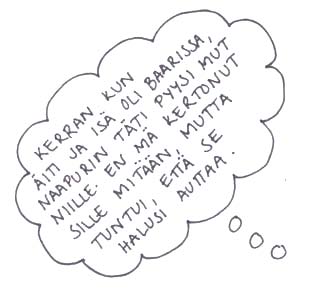 KERRAN KUN
ÄITI JA ISÄ OLI BAARISSA,
NAAPURIN TÄTI PYYSI MUT
NIILLE. EN MÄ KERTONUT
SILLE MITÄÄN, MUTTA
TUNTUI, ETTÄ SE
HALUSI AUTTAA.